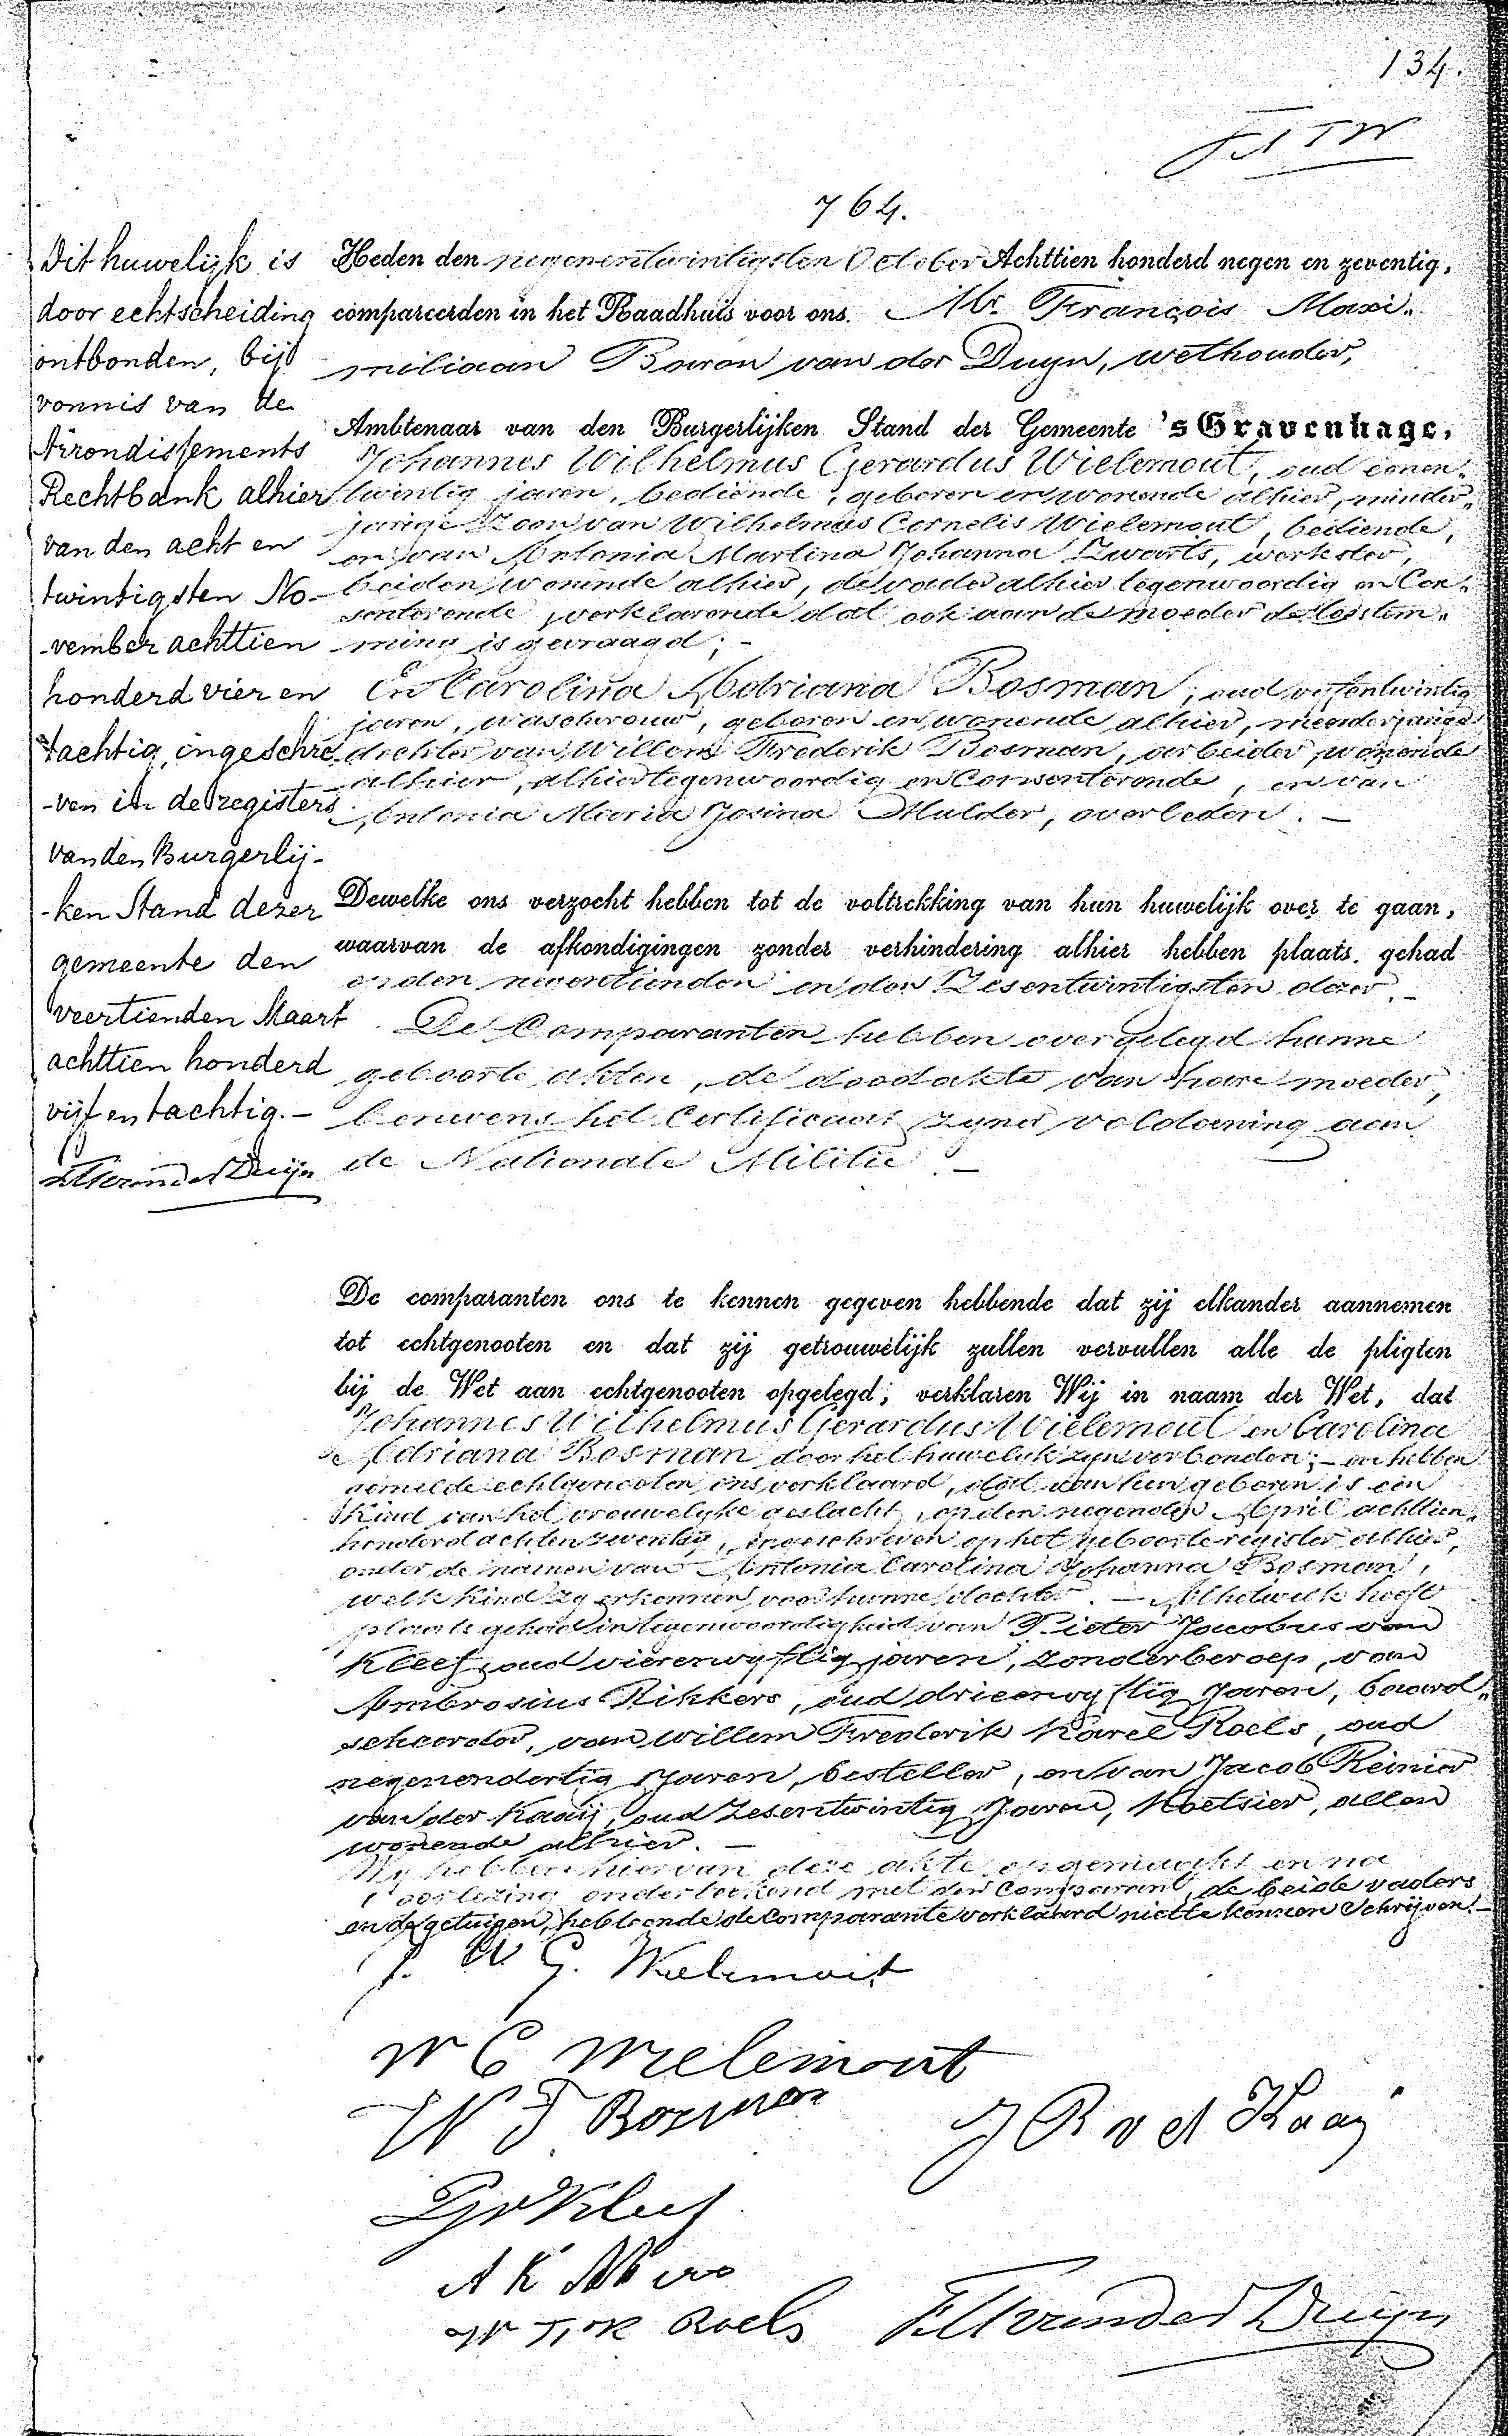 134.
764.
Dit huwelijk is
door echtscheiding
ontbonden, bij
vonnis van de
Arrondissements
Rechtbank alhier
van den acht en
twintigsten No-
-vember achttien
honderd vier en
tachtig, ingeschre-
-ven in de registers
van den Burgerlij-
-ken Stand dezer
gemeente den
veertienden Maart
achttien honderd
vijf en tachtig. -
FM van der Duijn
Heden den negenentwintigsten October Achttien honderd negen en zeventig,
compareerden in het Raadhuis voor ons. Mr. François Maxi-
miliaan Baron van der Duyn, wethouder,
Ambtenaar van den Burgerlijken Stand der Gemeente 's Gravenhage,
Johannes Wilhelmus Gerardus Wielemout, oud eenen-
twintig jaren, bediende, geboren en wonende alhier, minder-
jarige Zoon van Wilhelmus Cornelis Wielemout, bediende,
en van Antonia Martina Johanna Zwarts, werkster,
beiden wonende alhier, de vader alhier tegenwoordig en Con-
senterende, verklarende dat ook aan de moeder de toestem-
ming is gevraagd; -
En Carolina Adriana Bosman, oud vijfentwintig
jaren, waschvrouw, geboren en wonende alhier, meerderjarige
dochter van Willem Frederik Bosman, arbeider, wonende
alhier, alhier tegenwoordig en Consenterende, en van
Antonia Maria Josina Mulder, overleden. -
Dewelke ons verzocht hebben tot de voltrekking van hun huwelijk over te gaan,
waarvan de afkondigingen zonder verhindering alhier hebben plaats gehad
op den negentienden en den Zesentwintigsten dezer. -
De Comparanten hebben overgelegd hunne
geboorte akten, de doodakte van hare moeder,
benevens het Certificaat zyner voldoening aan
de Nationale Militie. -
De comparanten ons te kennen gegeven hebbende dat zij elkander aannemen
tot echtgenooten en dat zij getrouwelijk zullen vervullen alle de pligten
bij de Wet aan echtgenooten opgelegd; verklaren Wij in naam der Wet, dat
Johannes Wilhelmus Gerardus Wielemout en Carolina
Adriana Bosman door het huwelijk zyn verbonden; - en hebben
gemelde echtgenooten ons verklaard, dat van hen geboren is een
Kind van het vrouwelyke geslacht, op den negenden April achttien-
honderd achtenzeventig, ingeschreven op het geboorte register alhier,
onder de namen van Antonia Carolina Johanna Bosman,
welk Kind zy erkennen voor hunne dochter. - Alhetwelk heeft
plaats gehad in tegenwoordigheid van Pieter Jacobus van
Kleef, oud vierenvyftig jaren, zonder beroep, van
Ambrosius Rikkers, oud drieenvyftig Jaren, baard-
scheerder, van Willem Frederik Karel Roels, oud
negenendertig Jaren, besteller, en van Jacob Reinier
van der Kaaij, oud Zesentwintig Jaren, Koetsier, allen
wonende alhier. -
Wy hebben hiervan deze akte opgemaakt en na
voorlezing onderteekend met den Comparant, de beide vaders
en de getuigen, hebbende de Comparante verklaard niet te kennen Schrijven. -
J. W G. Wielemout
W C Wielemout
W F Bosman
J R v d Kaay
PJvKleef
W F K Roels
FM van der Duijn